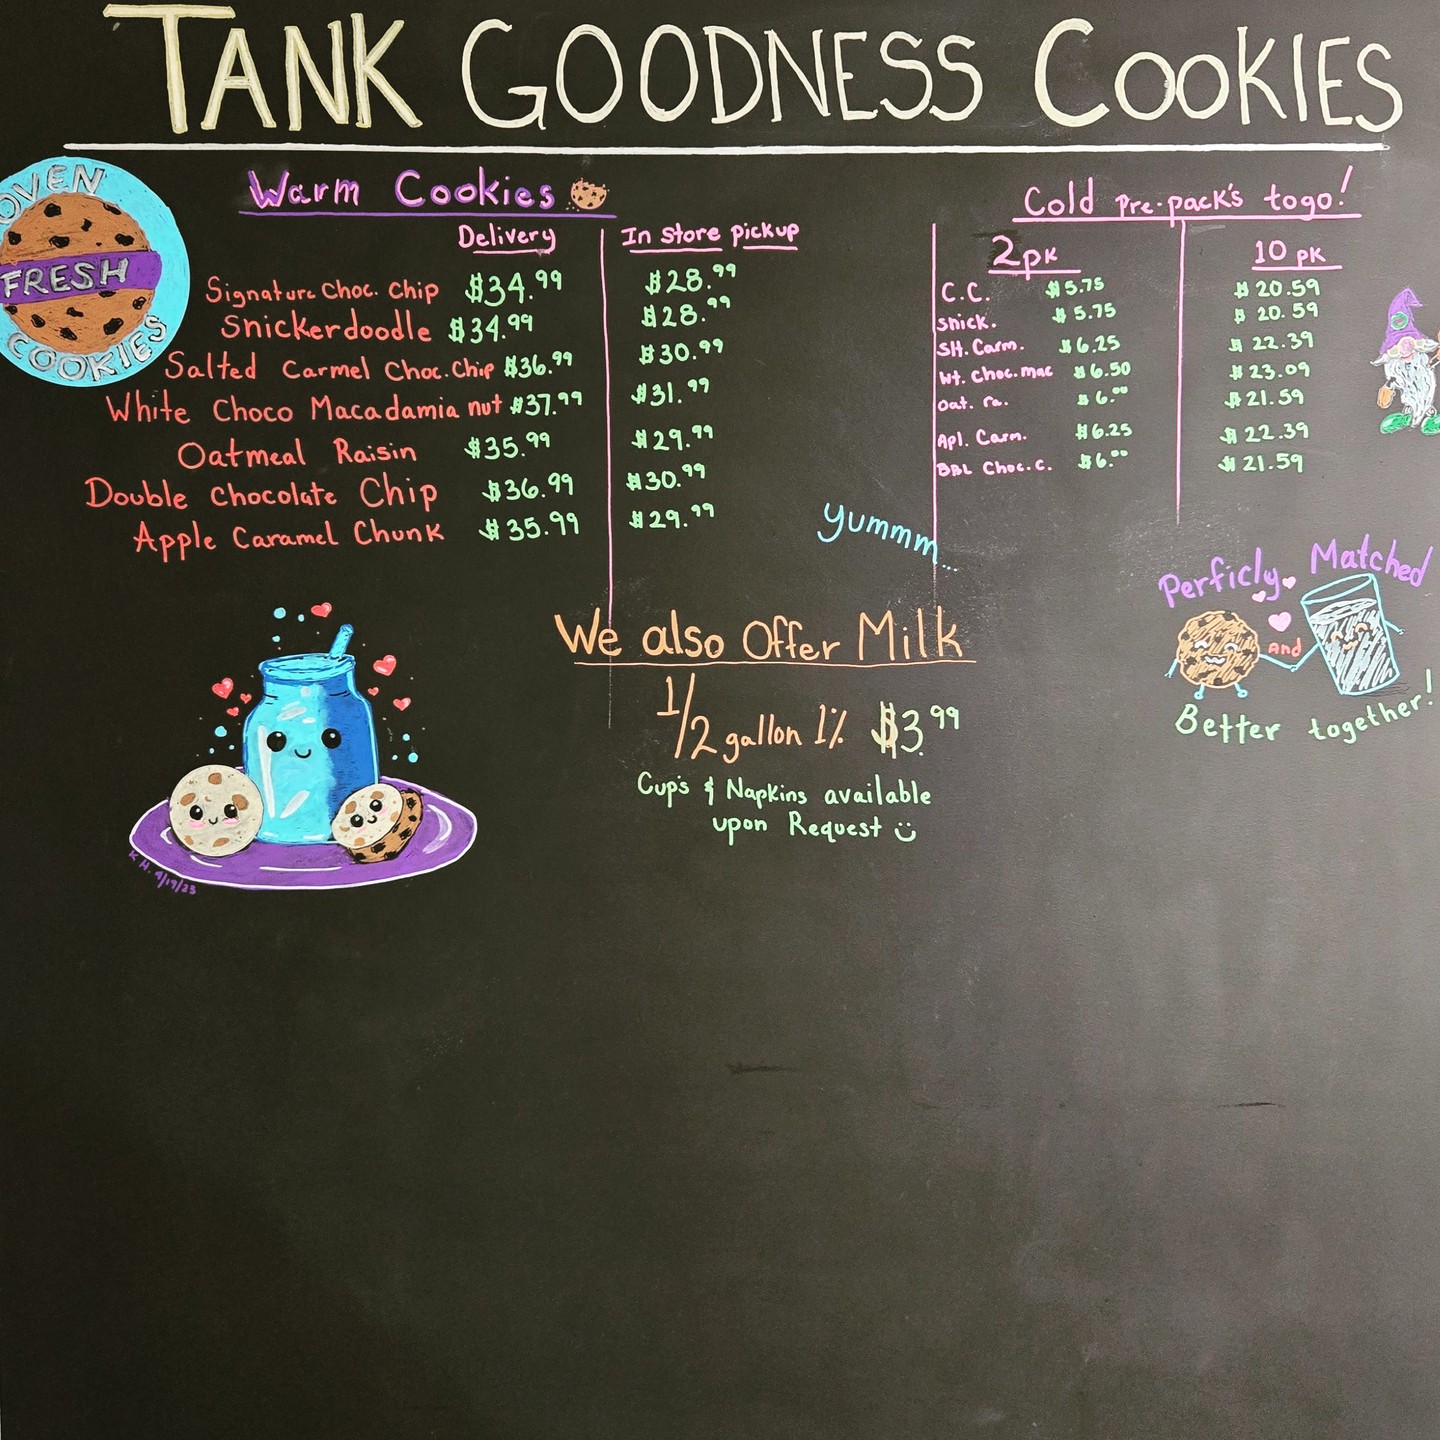 TANK GOODNESS COOKIES
OVEN
FRESH
COOKIES
Warm Cookies
Delivery In store pickup
Signature Choc. Chip $34.99 $28.99
Snickerdoodle $34.99 $28.99
Salted Carmel Choc. Chip $36.99 $30.99
White Choco Macadamia nut $37.99 $31.99
Oatmeal Raisin $35.99 $29.99
Double Chocolate Chip $36.99 $30.99
Apple Caramel Chunk $35.99 $29.99
Cold Pre-pack's to go!
2pk 10 pk
C.C. $5.75 $20.59
Snick. $5.75 $20.59
Slt. Carm. $6.25 $22.39
Wt. Choc. mac $6.50 $23.09
Oat. ra. $6.00 $21.59
Apl. Carm. $6.25 $22.39
DBL Choc. c. $6.00 $21.59
yummm...
We also Offer Milk
1/2 gallon 1% $3.99
Cup's & Napkins available
upon Request
Perficly Matched
And
Better together!
K.H. 9/19/23